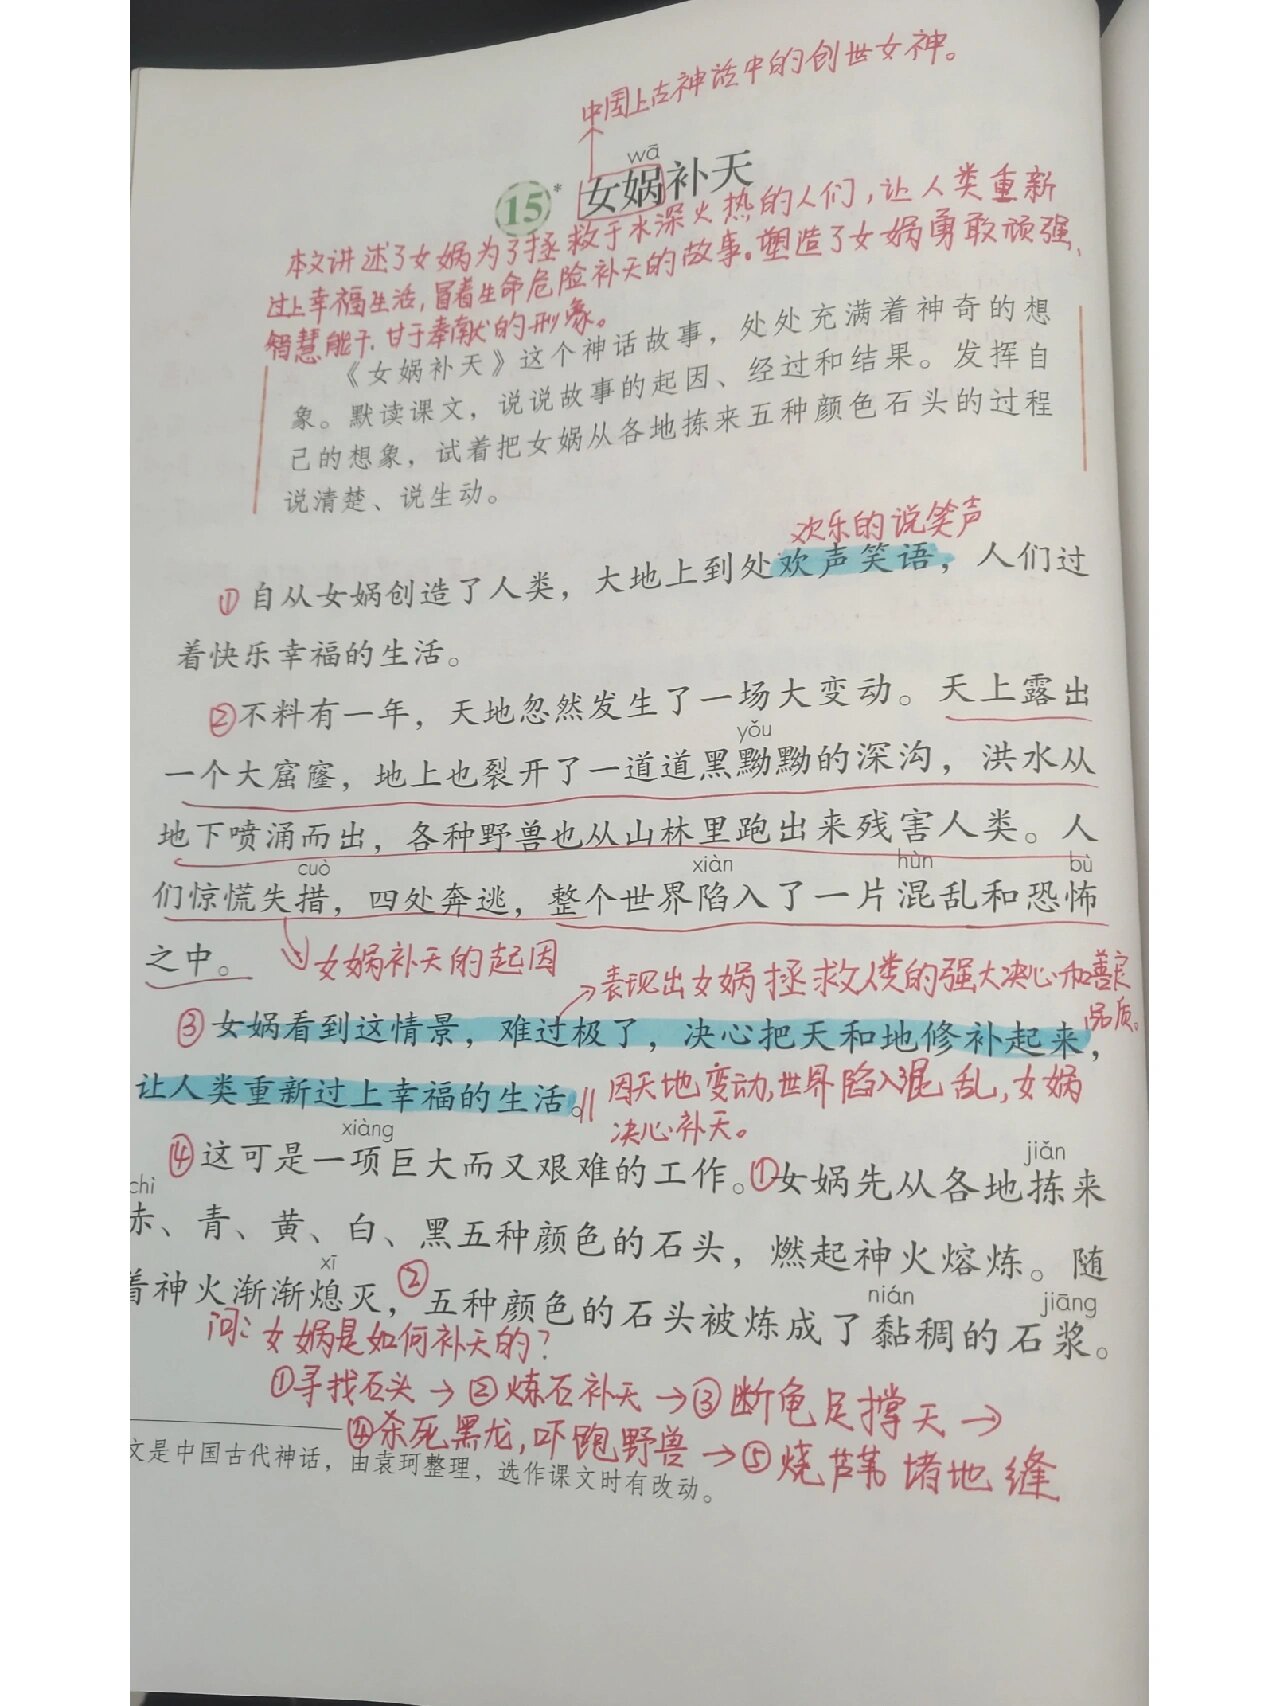 中国上古神话中的创世女神。
wā
15* 女娲补天
本文讲述了女娲为了拯救于水深火热的人们,让人类重新
过上幸福生活,冒着生命危险补天的故事。塑造了女娲勇敢顽强、
智慧能干、甘于奉献的形象。
《女娲补天》这个神话故事，处处充满着神奇的想
象。默读课文，说说故事的起因、经过和结果。发挥自
己的想象，试着把女娲从各地拣来五种颜色石头的过程
说清楚、说生动。
欢乐的说笑声
①自从女娲创造了人类，大地上到处欢声笑语，人们过
着快乐幸福的生活。
②不料有一年，天地忽然发生了一场大变动。天上露出
yǒu
一个大窟窿，地上也裂开了一道道黑黝黝的深沟，洪水从
地下喷涌而出，各种野兽也从山林里跑出来残害人类。人
cuò xiàn hùn bù
们惊慌失措，四处奔逃，整个世界陷入了一片混乱和恐怖
之中。
女娲补天的起因
表现出女娲拯救人类的强大决心和善良
品质。
③女娲看到这情景，难过极了，决心把天和地修补起来，
让人类重新过上幸福的生活。||
因天地变动,世界陷入混乱,女娲
决心补天。
xiàng jiǎn
④这可是一项巨大而又艰难的工作。①女娲先从各地拣来
chì
赤、青、黄、白、黑五种颜色的石头，燃起神火熔炼。随
xī nián jiāng
着神火渐渐熄灭，②五种颜色的石头被炼成了黏稠的石浆。
问：女娲是如何补天的?
①寻找石头→②炼石补天→③断龟足撑天→
④杀死黑龙,吓跑野兽→⑤烧芦苇堵地缝
文是中国古代神话，由袁珂整理，选作课文时有改动。